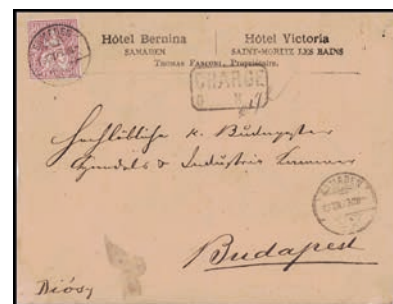 SAMADEN
Hôtel Bernina
Hôtel Victoria
SAMADEN
SAINT-MORITZ LES BAINS
Thomas Fanconi, Propriétaire.
CHARGÉ
Budapester
Handels & Industrie Kammer
SAMADEN
Budapest
Diósy